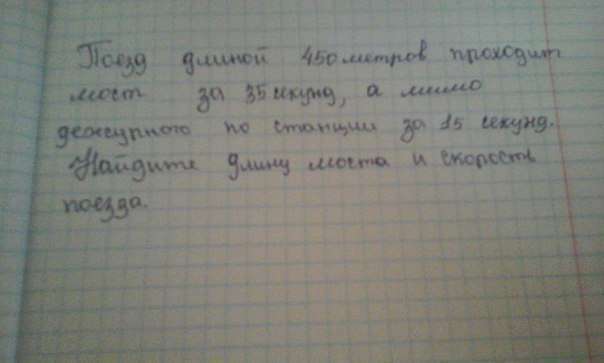 Поезд длиной 450 метров проходит
мост за 35 секунд, а мимо
дежурного по станции за 15 секунд.
Найдите длину моста и скорость
поезда.